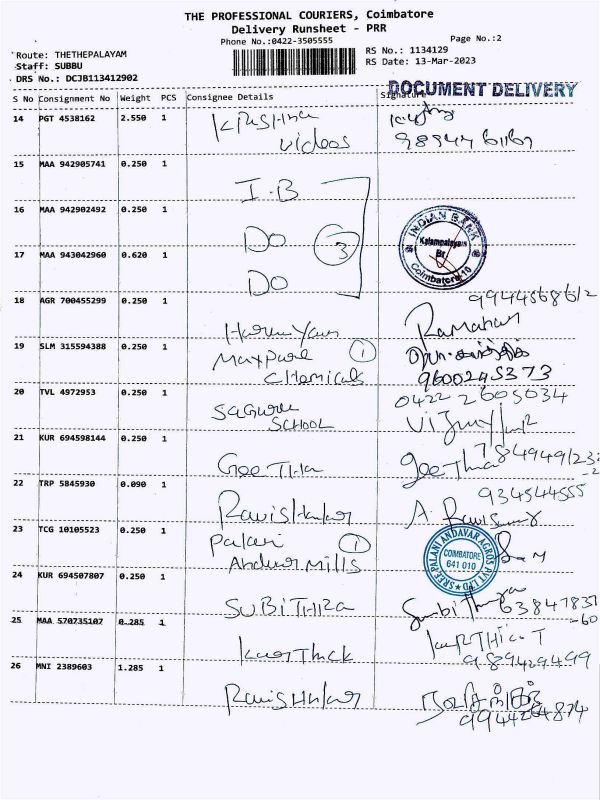 THE PROFESSIONAL COURIERS, Coimbatore
Delivery Runsheet - PRR
Phone No.:0422-3505555
Page No.:2
Route: THETHEPALAYAM
RS No.: 1134129
Staff: SUBBU
RS Date: 13-Mar-2023
DRS No.: DCJB113412902
DOCUMENT DELIVERY
S No Consignment No Weight PCS Consignee Details Signature
14 PGT 4538162 2.550 1 Krishna
videos
15 MAA 942905741 0.250 1
I.B
16 MAA 942902492 0.250 1
Do 3
INDIAN BANK
Kalampalayam
Br
Coimbatore-10
17 MAA 943042960 0.620 1
Do
18 AGR 700455299 0.250 1
Ramahar
19 SLM 315594388 0.250 1 Maxpure 1
Chemicals 9600245373
20 TVL 4972953 0.250 1 0422 2605034
SCHOOL
21 KUR 694598144 0.250 1
Geetha geetha
22 TRP 5845930 0.090 1 934544555
Ravishankar A.
23 TCG 10105523 0.250 1 Palani 1
Andvar Mills
SREE PALANI ANDAVAR AGROS PVT LTD
COIMBATORE
641 010
24 KUR 694507807 0.250 1
SUBITHRA 63847837
-60
25 MAA 570735107 0.285 1
KarThick KARTHICK T
989429499
26 MNI 2389603 1.285 1
Ravishankar